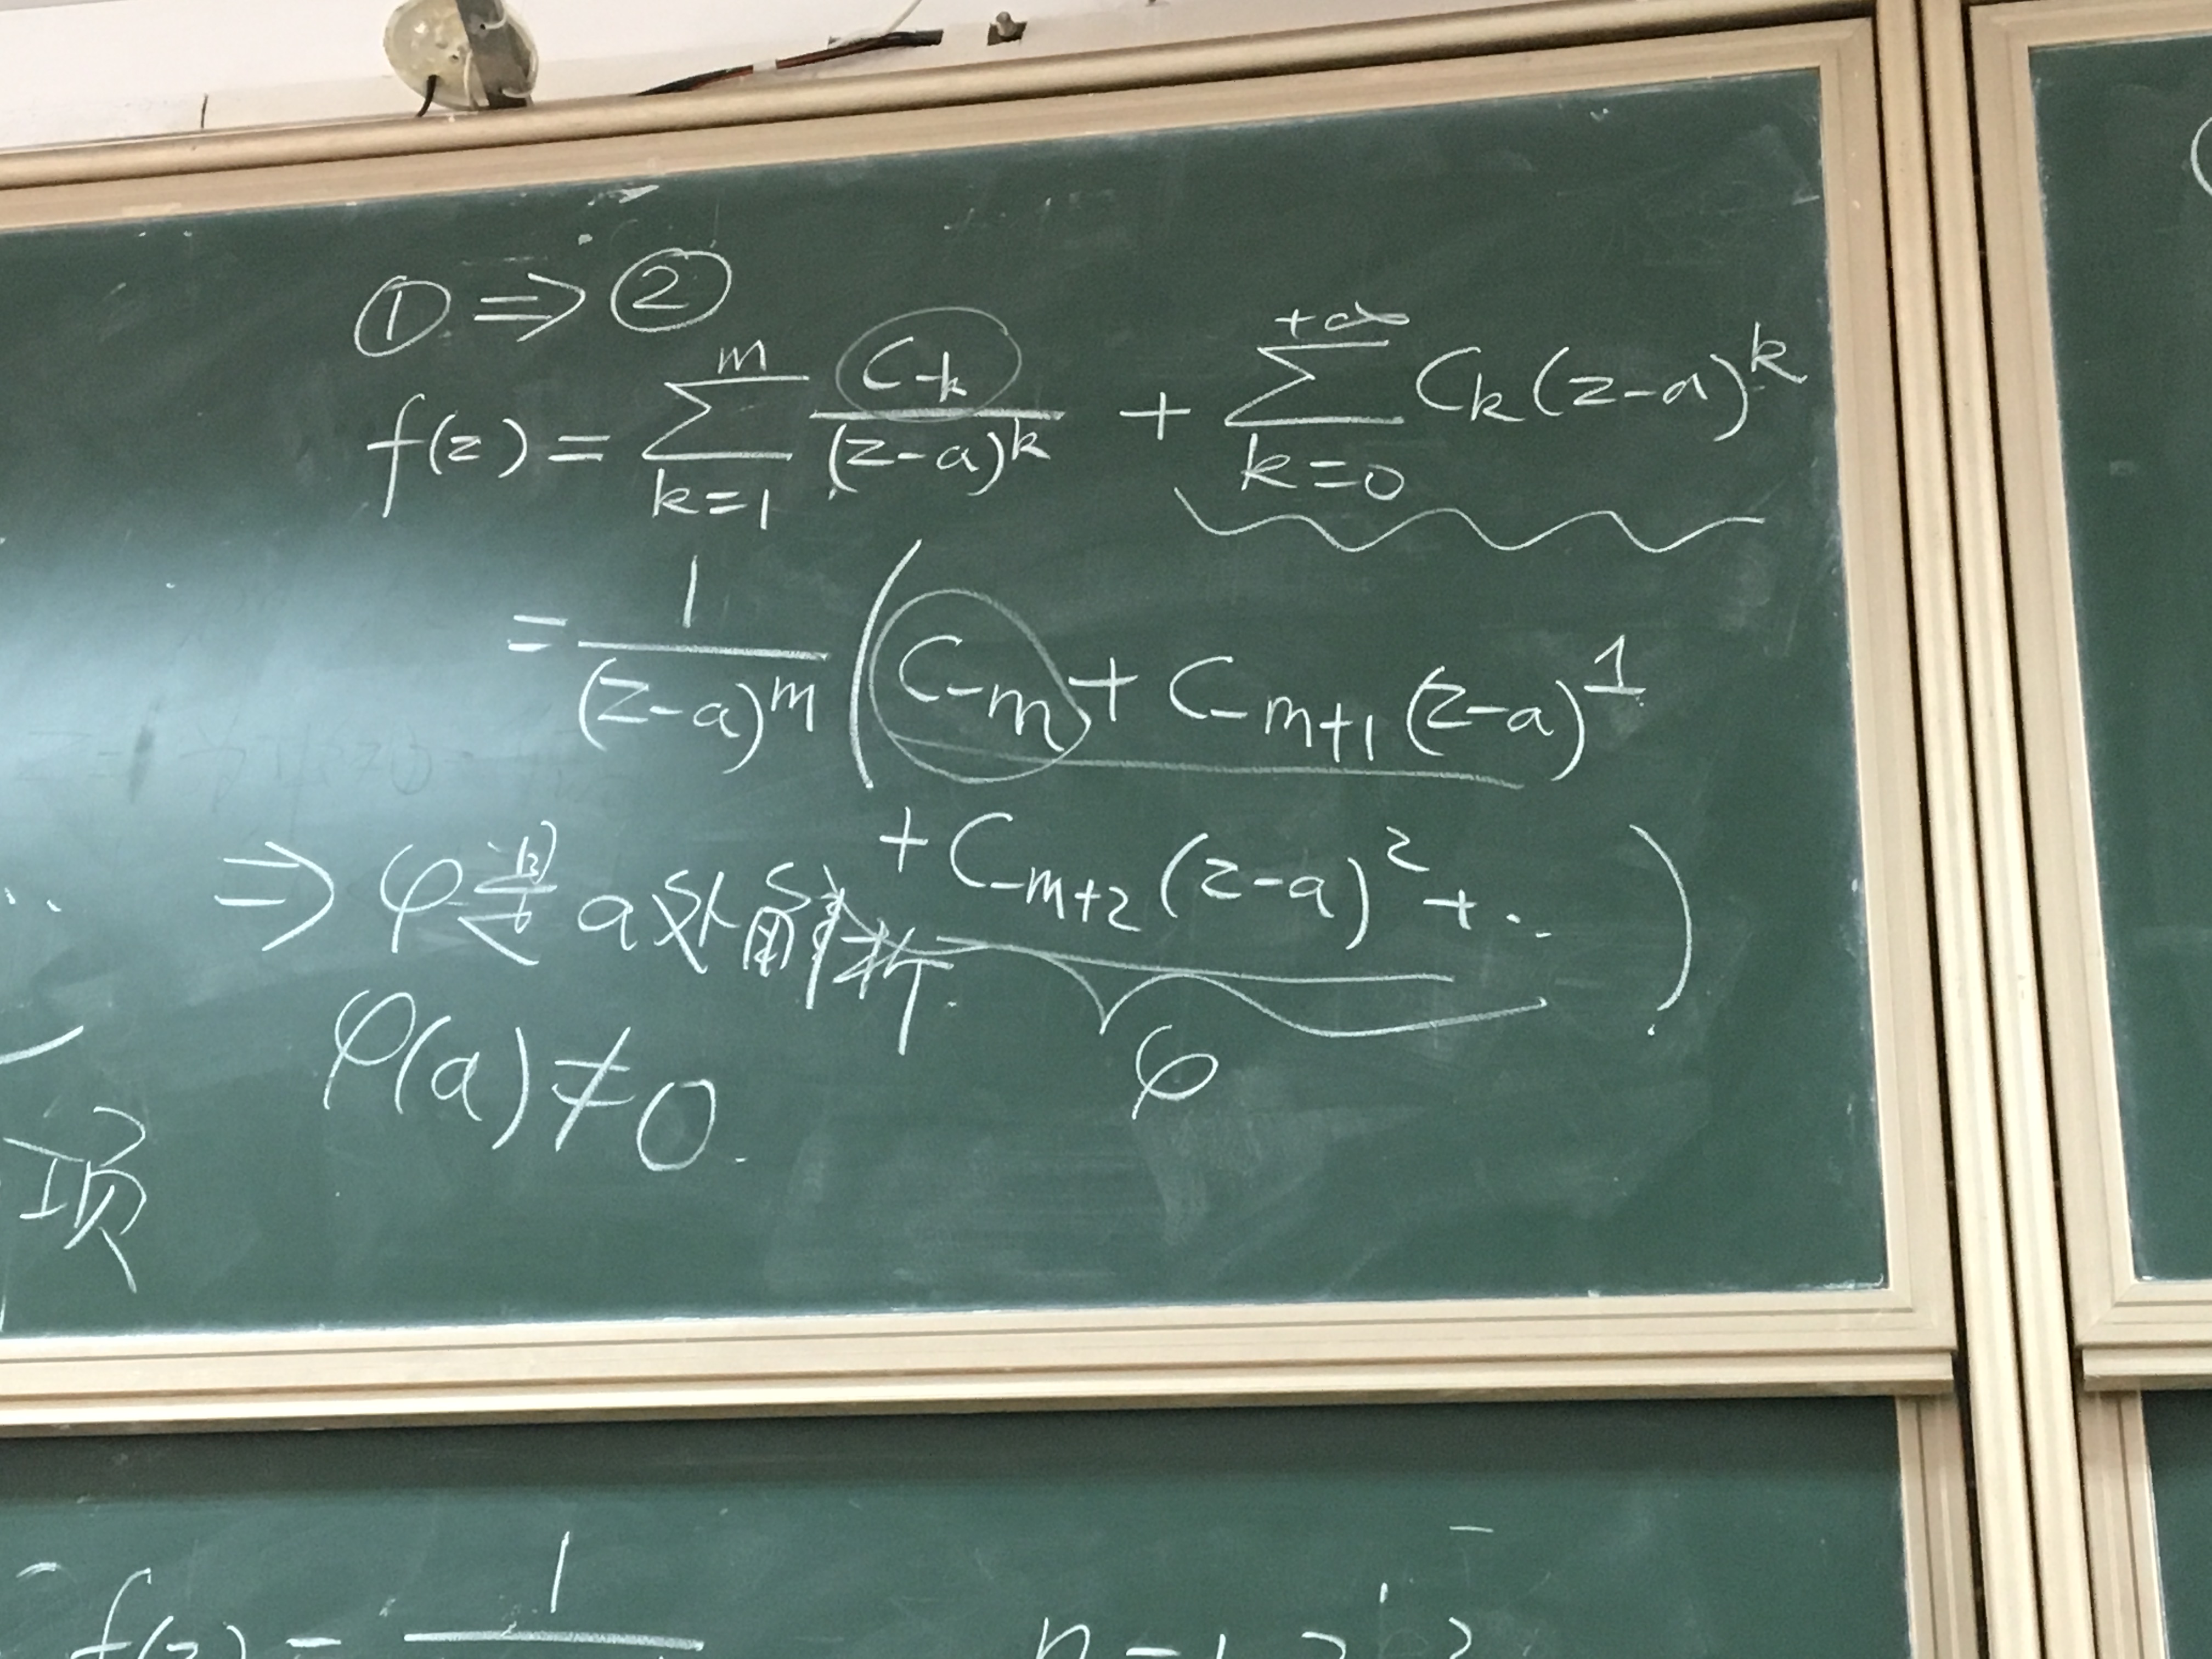 ① ⇒ ②
f(z) = \sum_{k=1}^{m} \frac{C_{-k}}{(z-a)^k} + \sum_{k=0}^{+∞} C_k (z-a)^k
= \frac{1}{(z-a)^m} ( C_{-m} + C_{-m+1} (z-a)^1
+ C_{-m+2} (z-a)^2 + ... )
⇒ φ a处解析.
φ
φ(a) ≠ 0.
项
f(z) = 1